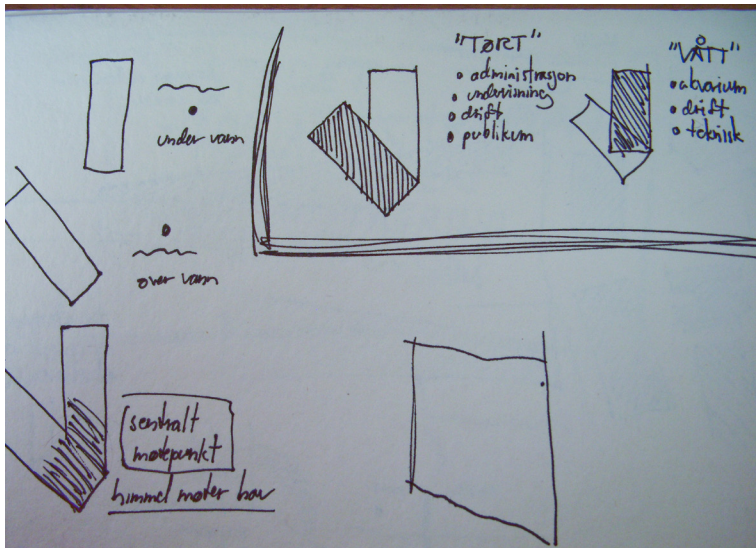 under vann
over vann
"TØRT"
• administrasjon
• undervisning
• drift
• publikum
"VÅTT"
• akvarium
• drift
• teknisk
sentralt
møtepunkt
himmel møter hav